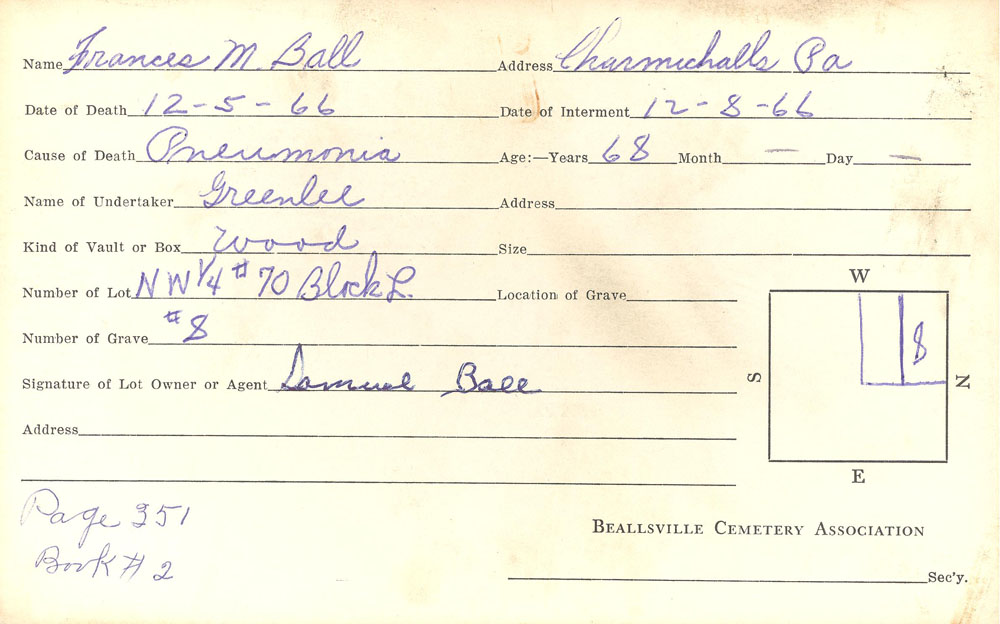 Name Frances M. Ball Address Charmichalls Pa
Date of Death 12-5-66 Date of Interment 12-8-66
Cause of Death Pneumonia Age:—Years 68 Month — Day —
Name of Undertaker Greenlee Address
Kind of Vault or Box Wood Size
Number of Lot NW 1/4 #70 Block L. Location of Grave
W
Number of Grave #8
8
S
N
Signature of Lot Owner or Agent Samuel Ball
Address
E
Page 351
Book # 2
BEALLSVILLE CEMETERY ASSOCIATION
Sec'y.